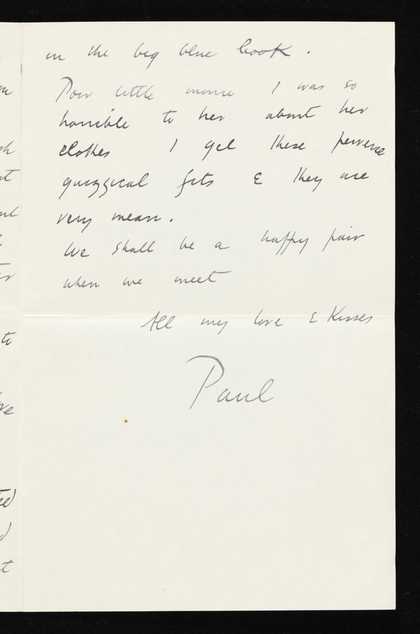 in the big blue book.
Poor little mouse I was so
horrible to her about her
clothes I get these perverse
quizzical fits & they are
very mean.
We shall be a happy pair
when we meet
All my love & Kisses
Paul